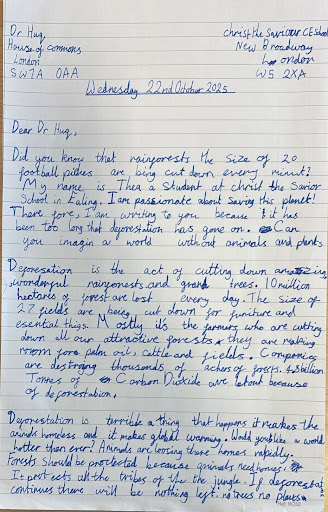 Dr Huq, christ the Saviour CE School
House of commons New Broadway
London London
SW1A 0AA W5 2XA
Wednesday 22nd October 2025
Dear Dr Huq,
Did you know that rainforests the size of 20
football pitches are being cut down every minute?
My name is Thea a Student at christ the Savior
School in Ealing. I am passionate about saving this planet!
There fore, I am writing to you because it has
been too long that deforestation has gone on. Can
you imagin a world without animals and plants
Deforesation is the act of cutting down amazing,
wonderful rainforests and grand trees. 10 million
hectares of forest are lost every day. The size of
27 fields are being cut down for funiture and
esential thigs. Mostly its the farmers who are cutting
down all our attractive forests they are making
room for palm oil, cattle and fields. Companies
are destroying thousands of achers of forests. 4.8 billion
Tonnes of Carbon Dioxide are let out because
of deforestation.
Deforestation is terrible a thing that happens it makes the
animals homeless and it makes global warming. Would you like a world
hotter than ever? Animals are loosing there homes rapidly.
Forests should be protected because animals need homes.
It protects all the tribes of the the jungle. If deforestation
continues there will be nothing left no trees no plants